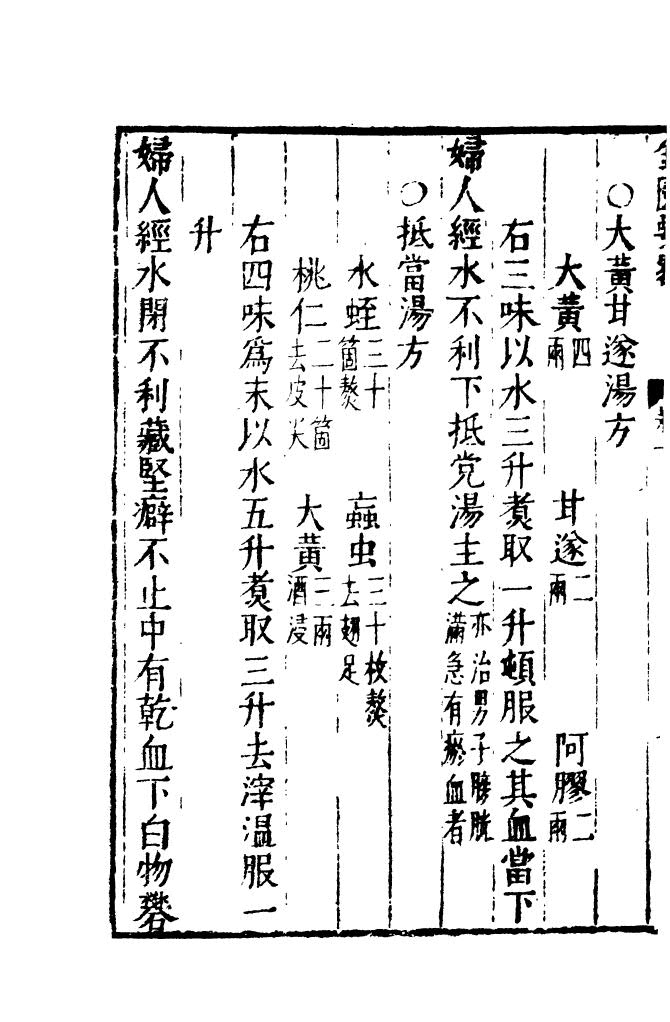 ○大黃甘遂湯方
大黃四兩　甘遂二兩　阿膠二兩
右三味以水三升煑取一升頓服之其血當下
婦人經水不利下抵党湯主之亦治男子膀胱滿急有瘀血者
○抵當湯方
水蛭三十箇熬　蝱虫三十枚熬去翅足
桃仁二十箇去皮尖　大黃三兩酒浸
右四味爲末以水五升煑取三升去滓温服一
升
婦人經水閉不利藏堅癖不止中有乾血下白物礬